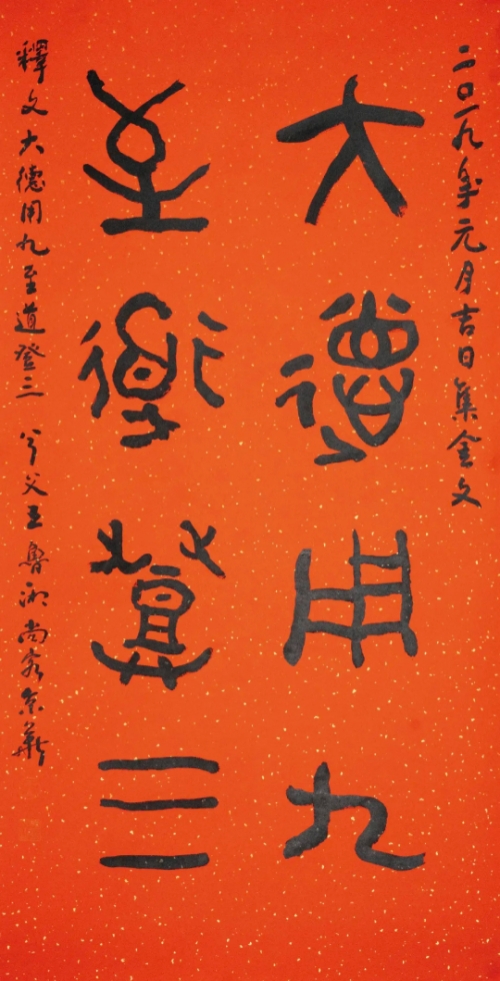 二〇一九年元月吉日集金文
大德用九
至道登三
釋文大德用九至道登三 父王魯湘尚客京華